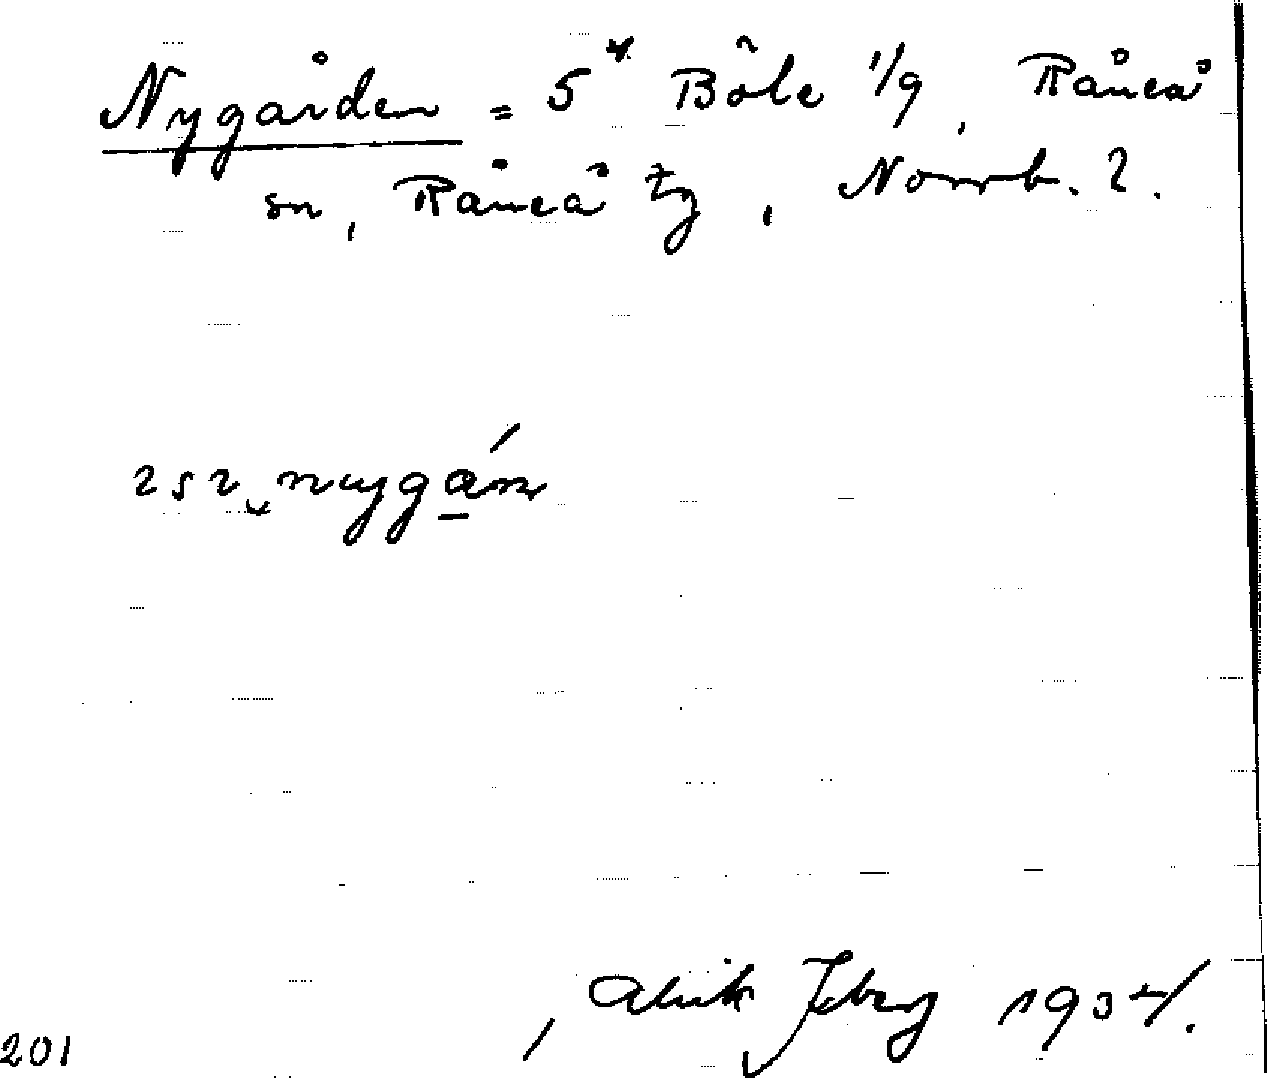 Nygården = 5⁴ Böle 1/9, Råneå
sn, Råneå tg, Norrb. l.
nygån
1934.
201